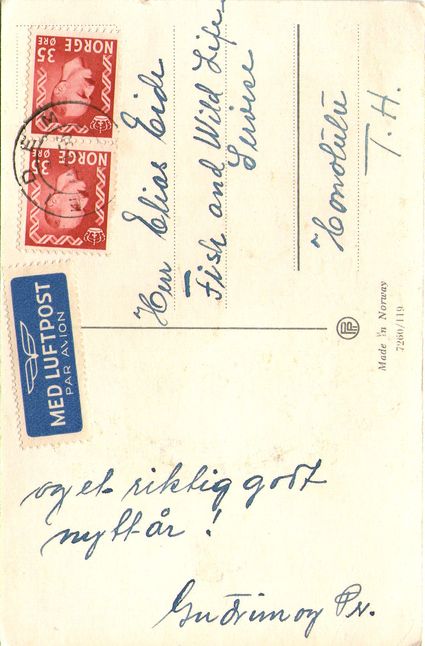 og et riktig godt
nytt år !
Gudrun og Pr.
Herr Elias Eide
Fish and Wild Life
Service
Honolulu
T. H.
NORGE
35
ØRE
NORGE
35
ØRE
MED LUFTPOST
PAR AVION
Made in Norway
7260/119